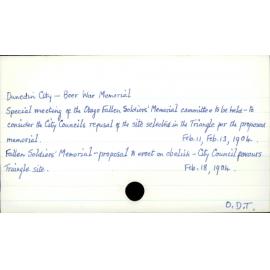 Dunedin City - Boer War Memorial
Special meeting of the Otago Fallen Soldiers' Memorial committee to be held - to
consider the City Councils refusal of the site selected in the Triangle for the proposed
memorial. Feb. 11, Feb. 13, 1904.
Fallen Soldiers' Memorial - proposal to erect an obelisk - City Council favours
Triangle site. Feb. 18, 1904.
O.D.T.